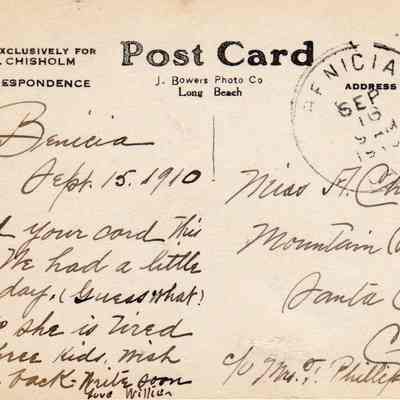 EXCLUSIVELY FOR
CHISHOLM
Post Card
J. Bowers Photo Co
Long Beach
ADDRESS
BENICIA
SEP
16
9 AM
Benicia
Sept. 15. 1910
your card this
We had a little
day. (Guess what!)
she is tired
kids. Wish
back - Write soon
Love William
Miss A. Ch
Mountain
Santa C
c/o Mrs. T. Phillip